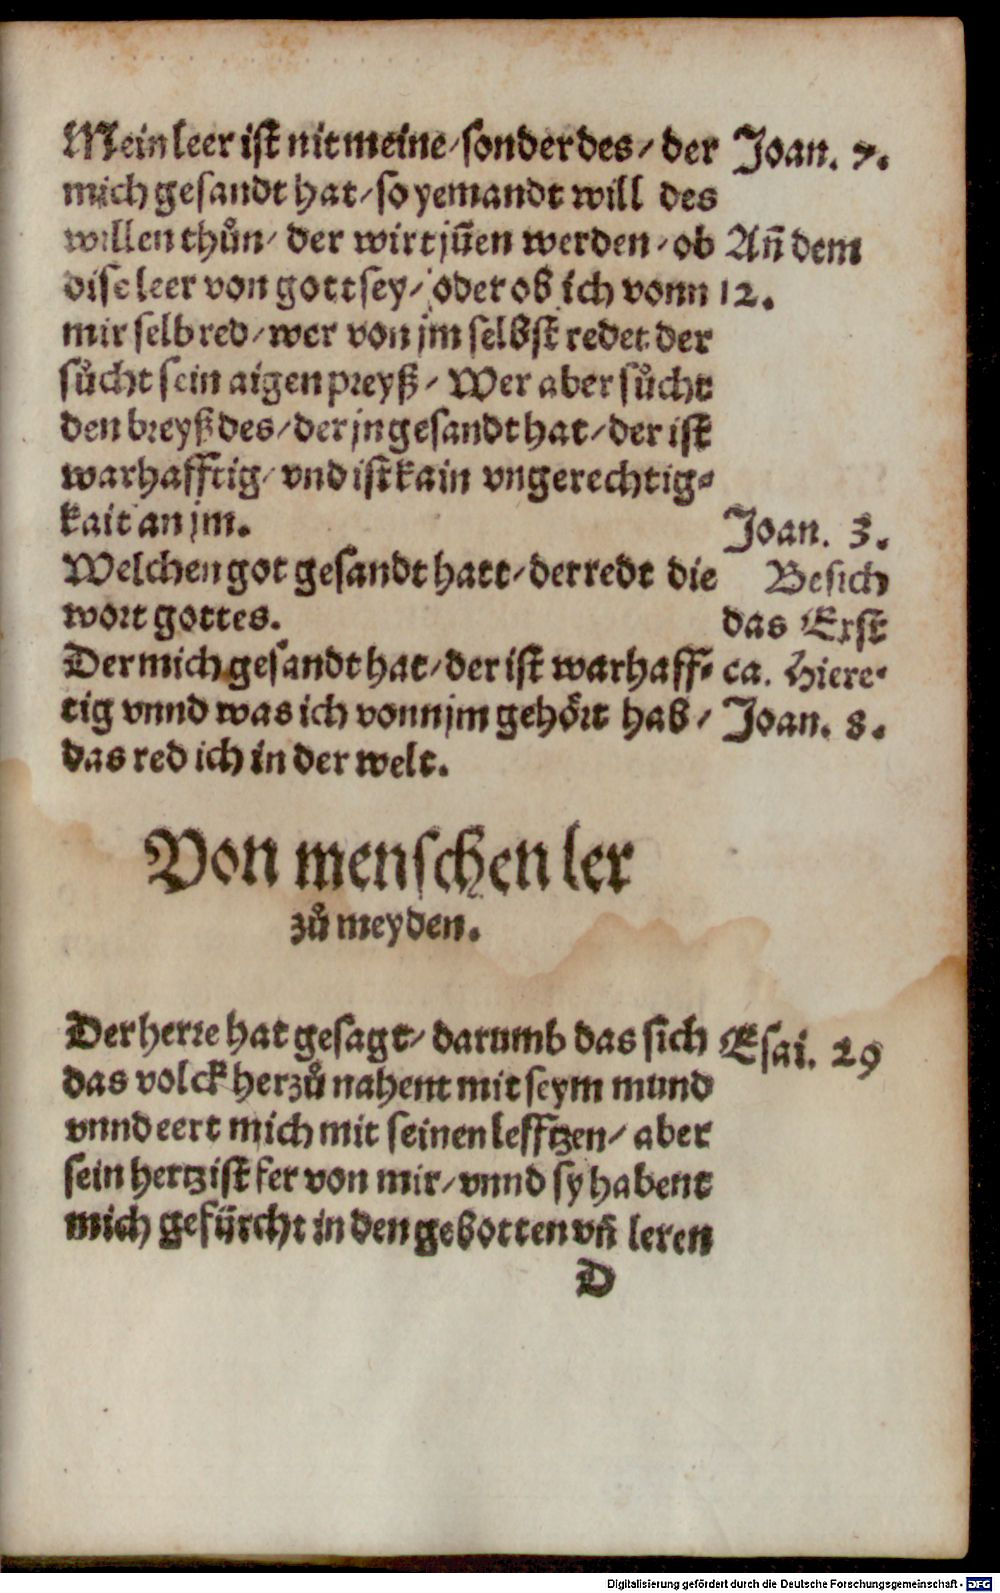 Mein leer ist nit meine/ sonder des/ der
Joan. 7.
mich gesandt hat/ so yemandt will des
willen thůn/ der wirt jñen werden/ ob
Añ dem
dise leer von gott sey/ oder ob ich vonn
12.
mir selb red/ wer von jm selbst redet der
sůcht sein aigen preyß/ Wer aber sůcht
den breyß des/ der jn gesandt hat/ der ist
warhafftig/ vnd ist kain vngerechtig⸗
kait an jm.
Joan. 3.
Welchen got gesandt hatt/ der redt die
Besich
wort gottes.
das Erst
Der mich gesandt hat/ der ist warhaff⸗
ca. Hiere⸗
tig vnnd was ich vonn jm gehört hab/
Joan. 8.
das red ich in der welt.
Von menschen ler
zů meyden.
Der herre hat gesagt/ darumb das sich
Esai. 29
das volck herzů nahent mit seym mund
vnnd eert mich mit seinen lefftzen/ aber
sein hertz ist fer von mir/ vnnd sy habent
mich gefürcht in den gebotten vñ leren
D
Digitalisierung gefördert durch die Deutsche Forschungsgemeinschaft - DFG